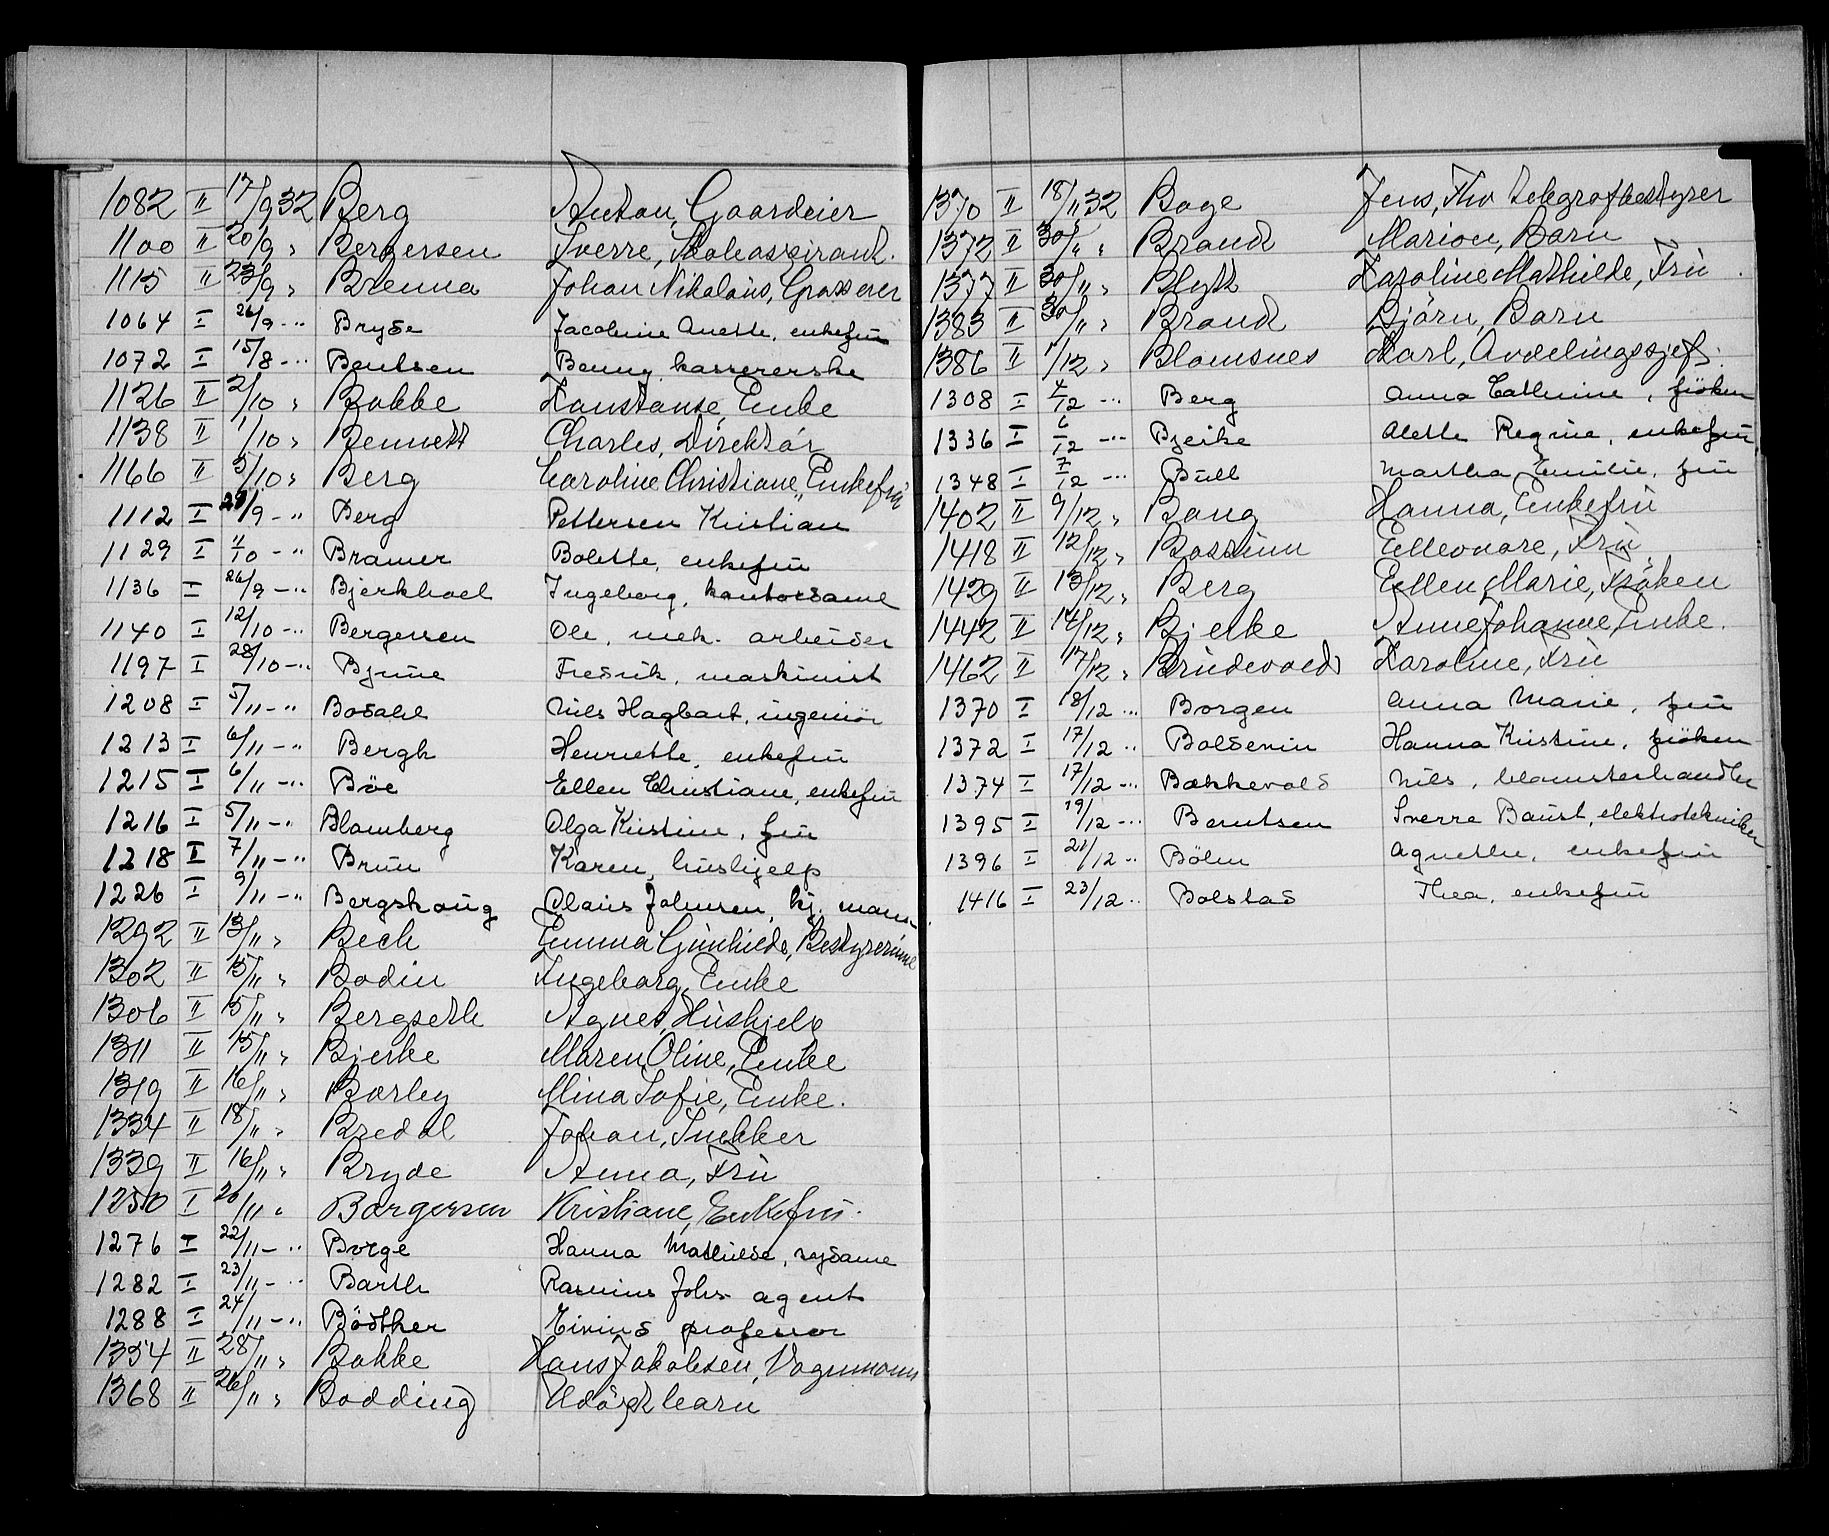 1082 II 17/9 32 Berg Anton, Gaardeier
1100 II 20/9 " Bergersen Sverre, Skoleaspirant.
1115 II 23/9 " Brenna Johan Nikolaus, Grosserer
1064 I 26/9 - " Bryde Jacobine Anette, enkefru
1072 I 15/8 - " Bentsen Benny, kassererske
1126 II 2/10 " Bakke Konstanse, Enke
1138 II 1/10 " Bennett Charles, Direktør
1166 II 5/10 " Berg Caroline Christiane, Enkefrü
1112 I 29/9 - " Berg Pettersen Kristian
1129 I 4/10 - " Bramer Bolette, enkefru
1136 I 26/9 - " Bjerkhoel Ingeborg, kontordame
1140 I 12/10 - " Bergersen Ole, mek. arbeider
1197 I 28/10 - " Bjune Fredrik, maskinist
1208 I 5/11 - " Bodahl Nils Hagbart, ingeniør
1213 I 6/11 - " Bergh Henriette, enkefru
1215 I 6/11 - " Böe Ellen Christiane, enkefru
1216 I 5/11 - " Blomberg Olga Kristine, fru
1218 I 7/11 - " Brun Karen, hushjelp
1226 I 9/11 - " Bergskaug Olaus Johnsen, kj. mann
1292 II 13/11 " Bech Emma Gunhilda, Bestyrerinne
1302 II 15/11 " Bodin Ingeborg, Enke
1306 II 15/11 " Bergseth Agnes, Hüshjelp
1311 II 15/11 " Bjerke Maren Oline, Enke
1319 II 16/11 " Borley Mina Sofie, Enke.
1334 II 18/11 " Bredal Johan, Snekker
1339 II 16/11 " Bryde Anna, Frü
1250 I 20/11 " Borgersen Kristiane, Enkefru.
1276 I 22/11 - " Borge Hanna Mathilde, sydame
1282 I 23/11 - " Barth Rasmus Johs agent
1288 I 24/11 - " Bödtker Eivind professor
1354 II 28/11 " Bakke Hans Jakobsen, Vognmann
1368 II 26/11 " Bodding Udöpt barn
1370 II 18/11 32 Bage Jens, Thv telegrafbestyrer
1372 II 30/11 " Brand Marion, Barn
1377 II 30/11 " Blytt Karoline Mathilde, Frü
1383 II 30/11 " Brand Björn, Barn
1386 II 1/12 " Blomsnes Karl, Avdelingssjef.
1308 I 4/12 - " Berg Anna Cathrine, fröken
1336 I 6/12 - " Bjerke Alette Regine, enkefru
1348 I 7/12 - " Bull Martha Emilie, fru
1402 II 9/12 " Bang Hanna, Enkefrü
1418 II 12/12 " Bassüm Elleonore, Frü
1429 II 13/12 " Berg Ellen Marie, Fröken
1442 II 14/12 " Bjelke Anne Johanne, Enke.
1462 II 17/12 " Brüdevold Karoline, Frü
1370 I 18/12 " Borgen Anna Marie, fru
1372 I 17/12 " Boldevin Hanna Kristine, fröken
1374 I 17/12 - " Bækkevold Nils, blomsterhandler
1395 I 19/12 - " Berntsen Sverre Baust, elektrotekniker
1396 I 21/12 " Böhn Agnethe, enkefru
1416 I 23/12 " Bolstad Thea, enkefru